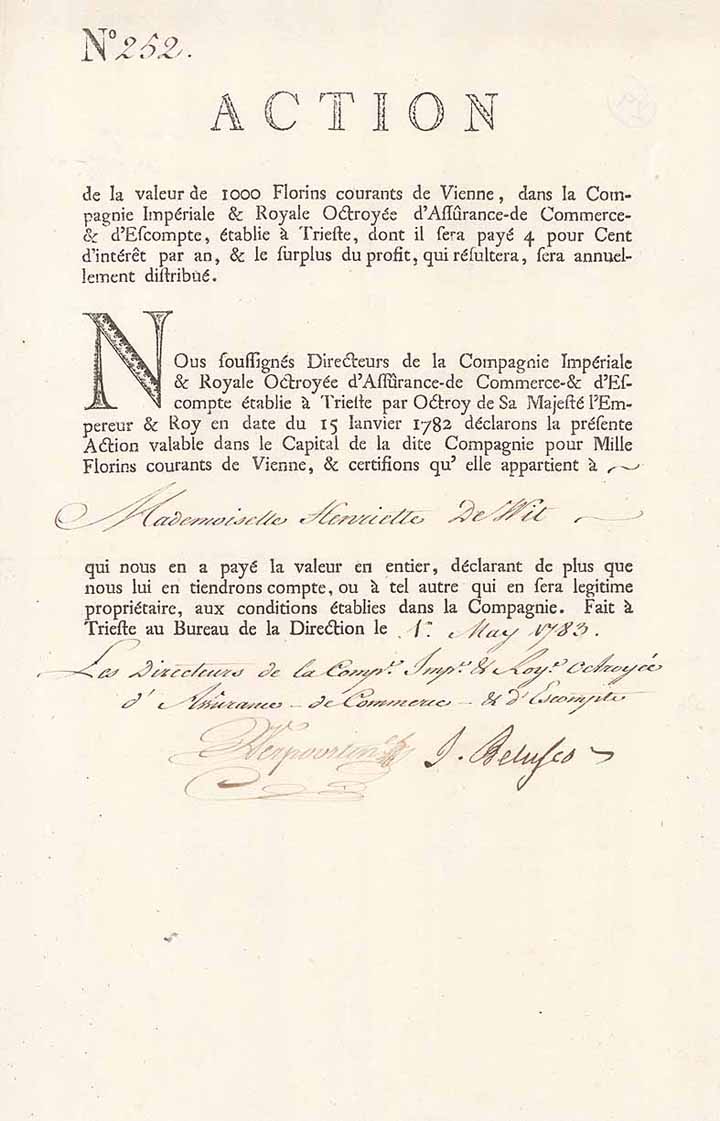 Nº 252.
ACTION
PV
de la valeur de 1000 Florins courants de Vienne, dans la Com-
pagnie Impériale & Royale Octroyée d'Aſſûrance-de Commerce-
& d'Eſcompte, établie à Trieſte, dont il ſera payé 4 pour Cent
d'intérêt par an, & le ſurplus du profit, qui réſultera, ſera annuel-
lement diſtribué.
NOus ſouſſignés Directeurs de la Compagnie Impériale
& Royale Octroyée d'Aſſûrance-de Commerce-& d'Eſ-
compte établie à Trieſte par Octroy de Sa Majeſté l'Em-
pereur & Roy en date du 15 Ianvier 1782 déclarons la préſente
Action valable dans le Capital de la dite Compagnie pour Mille
Florins courants de Vienne, & certifions qu' elle appartient à
Mademoiselle Henriette De Wit
qui nous en a payé la valeur en entier, déclarant de plus que
nous lui en tiendrons compte, ou à tel autre qui en ſera legitime
propriétaire, aux conditions établies dans la Compagnie. Fait à
Trieſte au Bureau de la Direction le 1r. May 1783.
Les Directeurs de la Compe. Impe. & Roye. octroyée
d'Aſsûrance - de Commerce - & d'Escompte
J. Beluſco